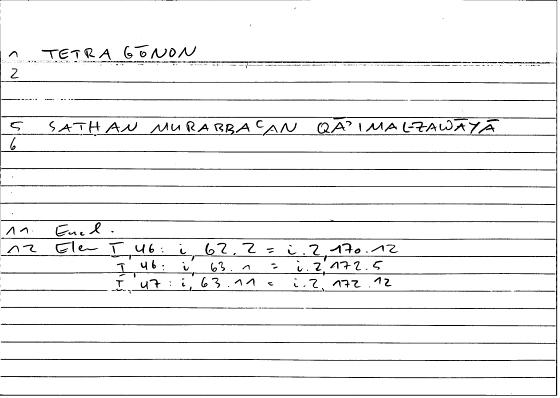 1 TETRAGŌNON
2
5 SATHAN MURABBAʿAN QĀʾIMALZAWĀYĀ
6
11 Eucl.
12 Elem I, 46: i, 62.2 = i.2, 170.12
I, 46: i, 63.1 = i.2, 172.5
I, 47: i, 63.11 = i.2, 172.12